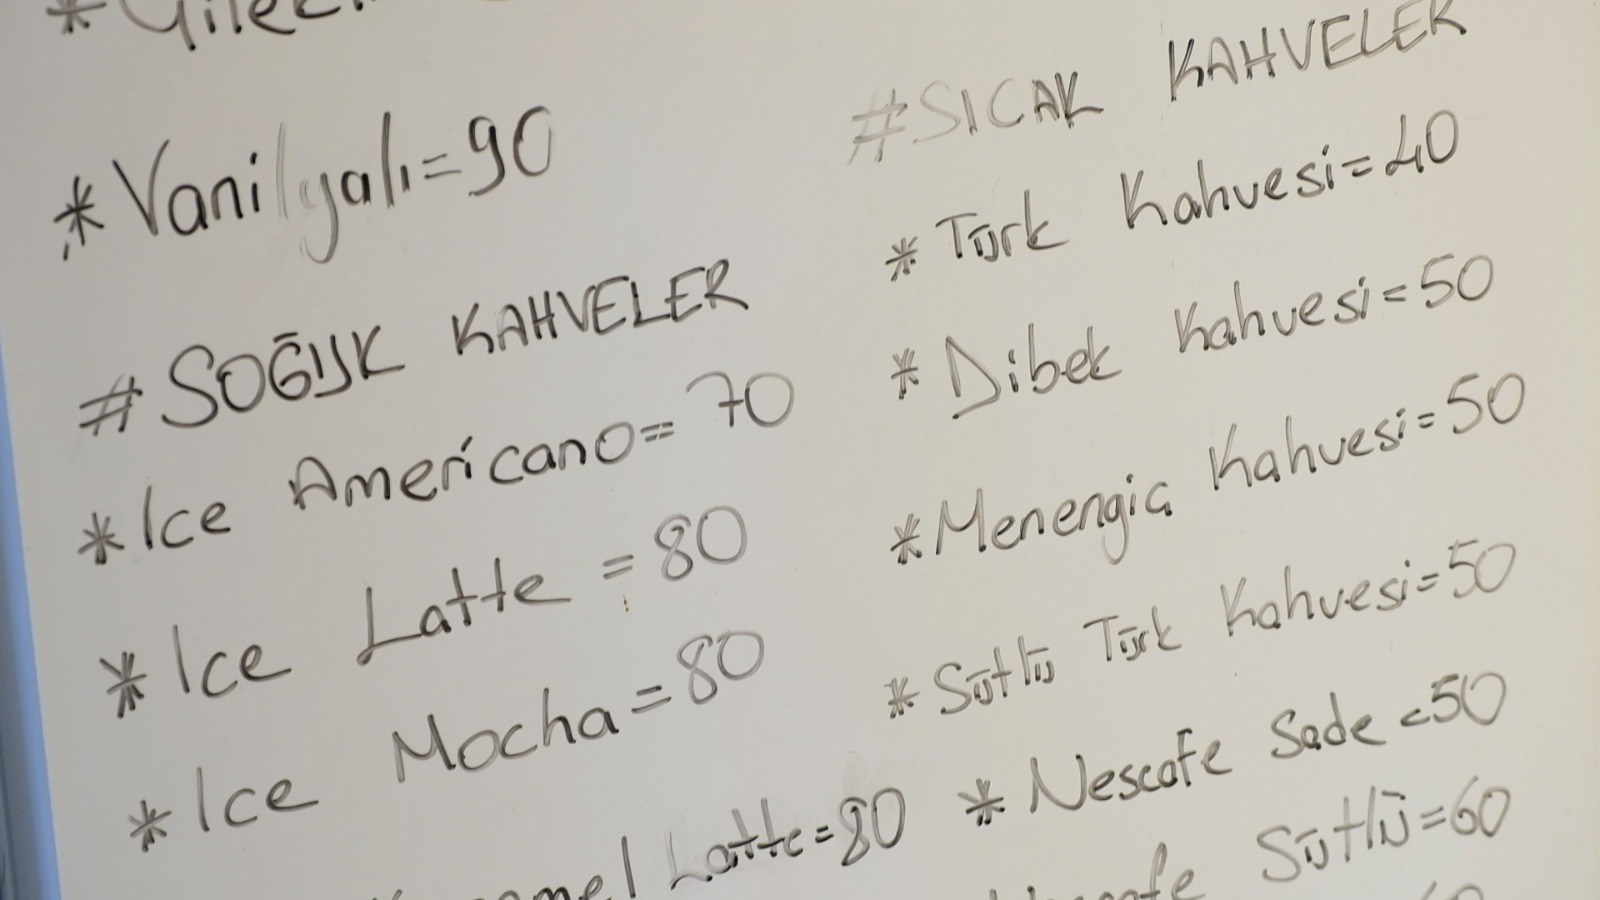 *Vanilyalı=90
#SOĞUK KAHVELER
*Ice Americano=70
*Ice Latte=80
*Ice Mocha=80
Latte=80
#SICAK KAHVELER
*Türk Kahvesi=40
*Dibek Kahvesi=50
*Menengiç Kahvesi=50
*Sütlü Türk Kahvesi=50
*Nescafe Sade=50
Sütlü=60